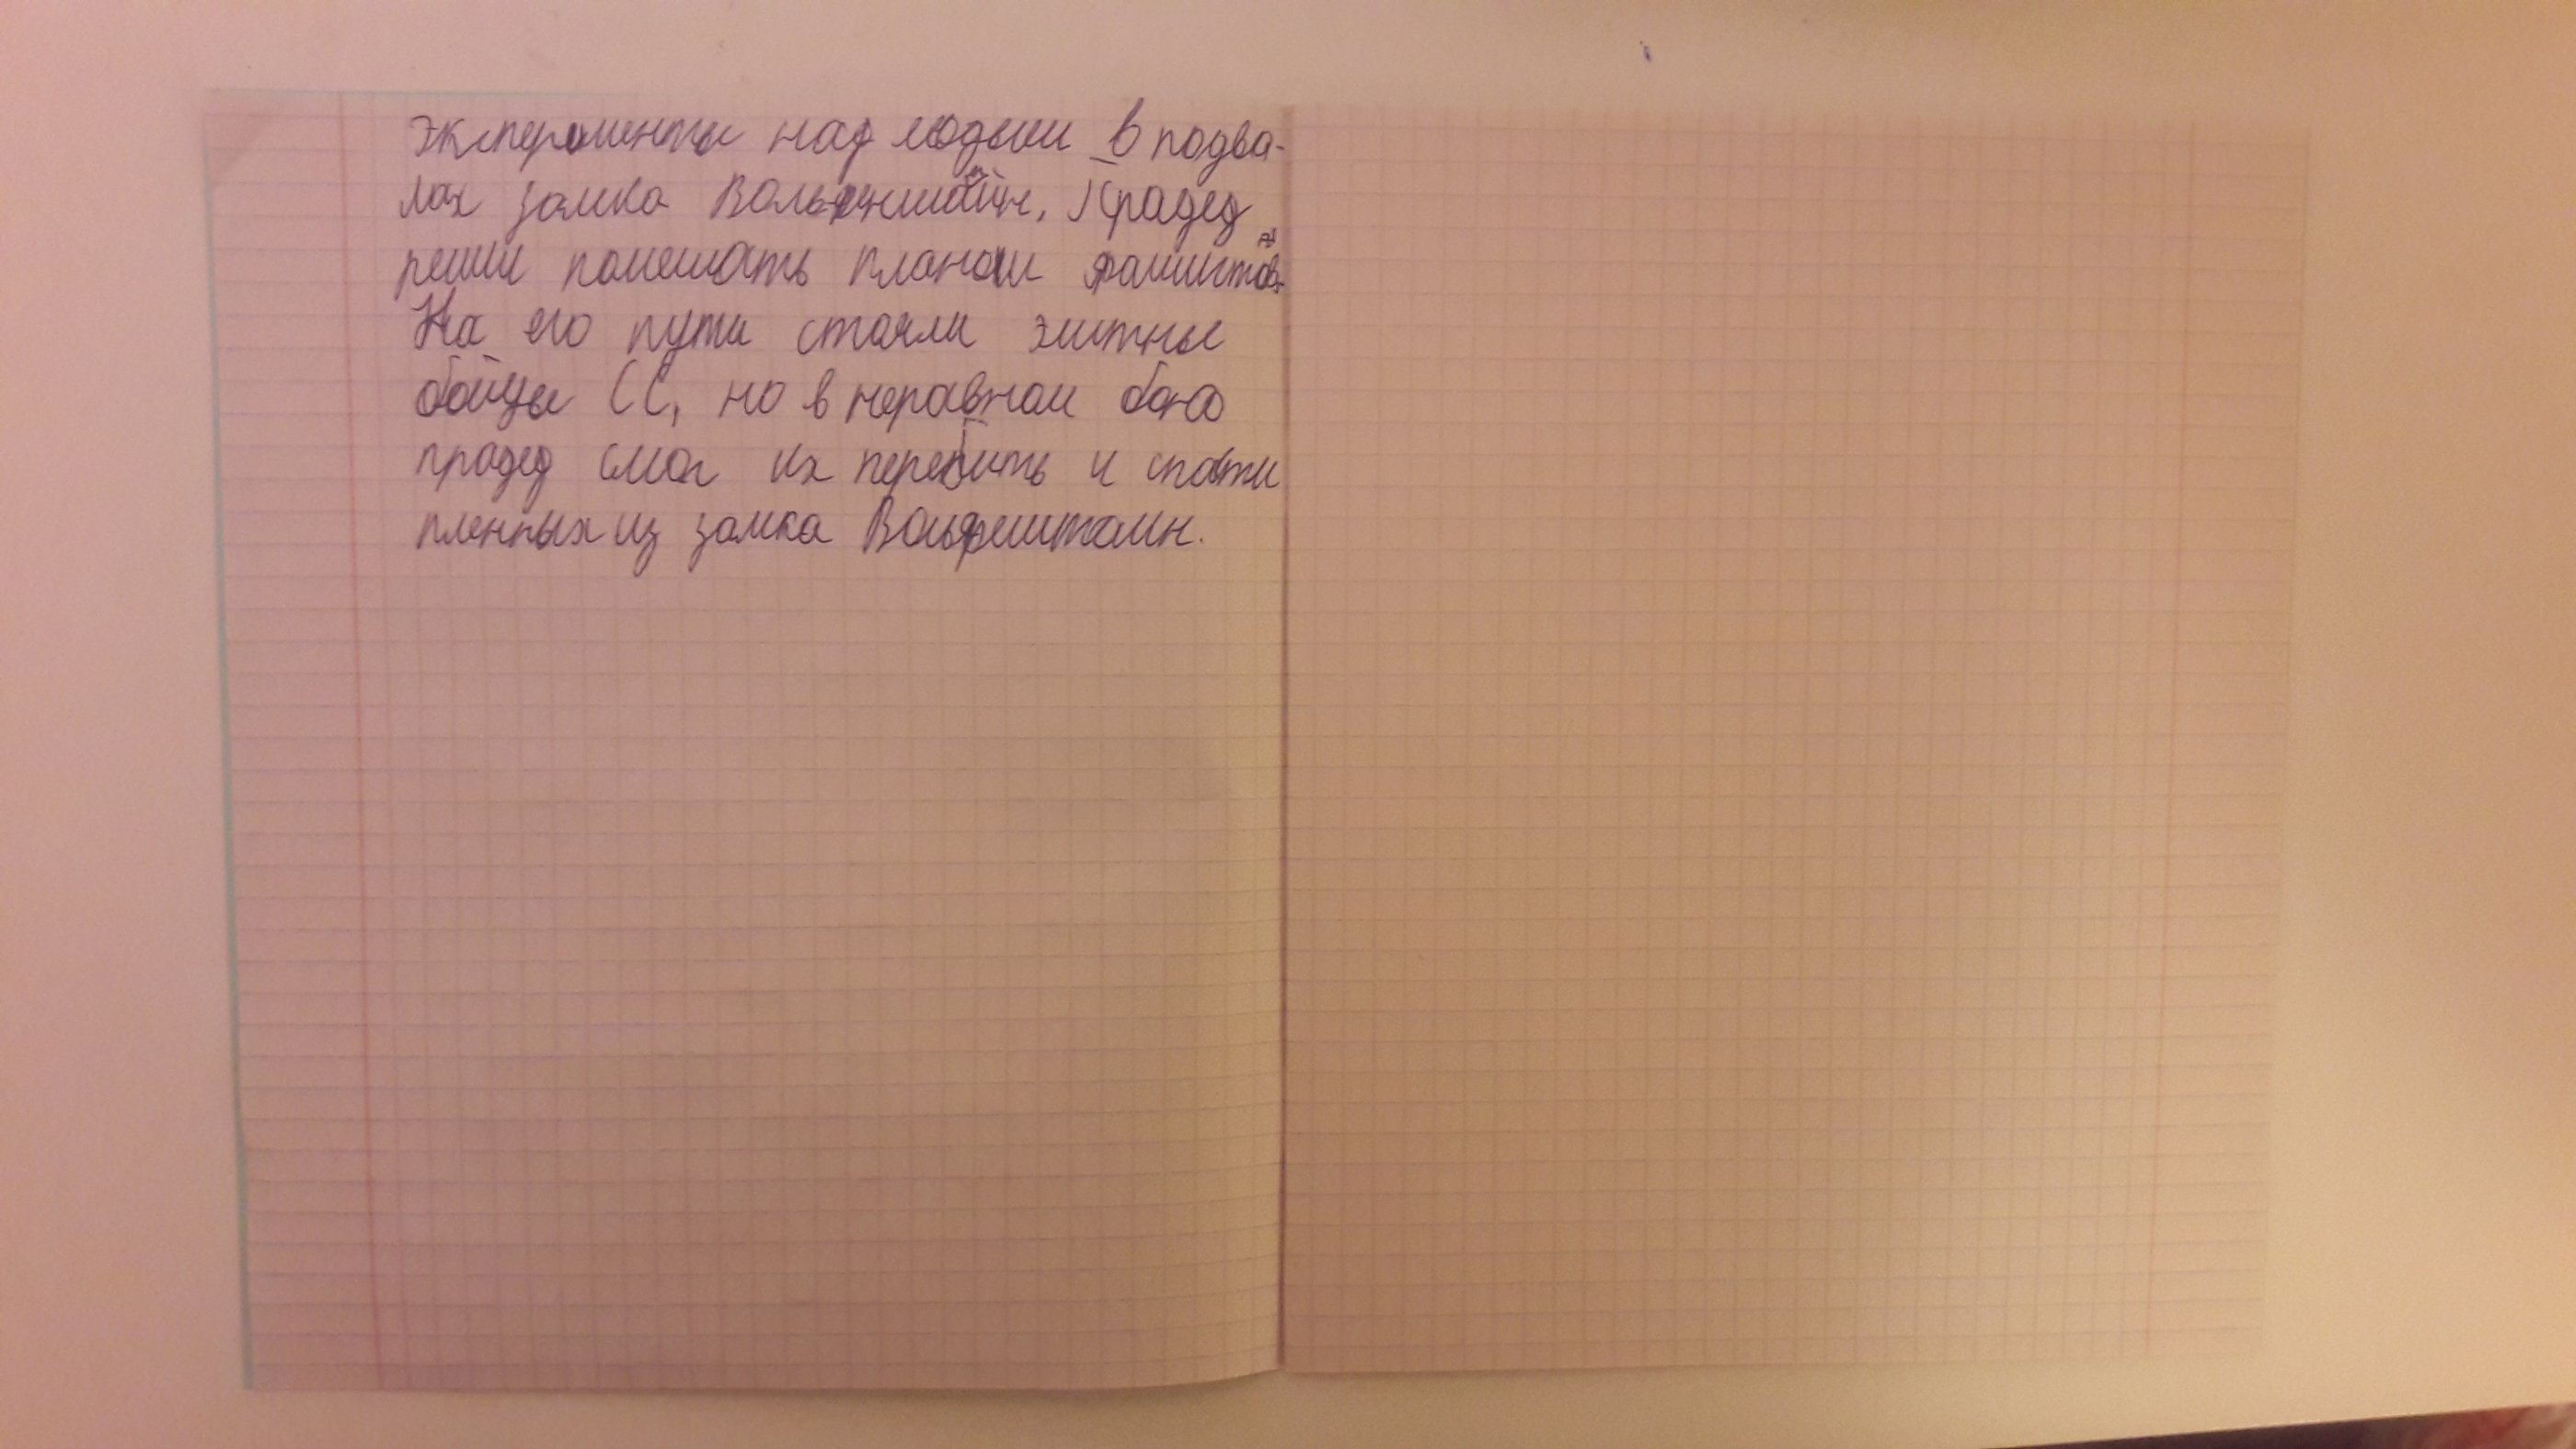 эксперименты над людьми в подва-
лах замка Вольфенштайн. Прадед
решил помешать планам фашистов.
На его пути стояли элитны
бойцы СС, но в неравном бою
прадед смог их перебить и спасти
пленных из замка Вольфештаин.